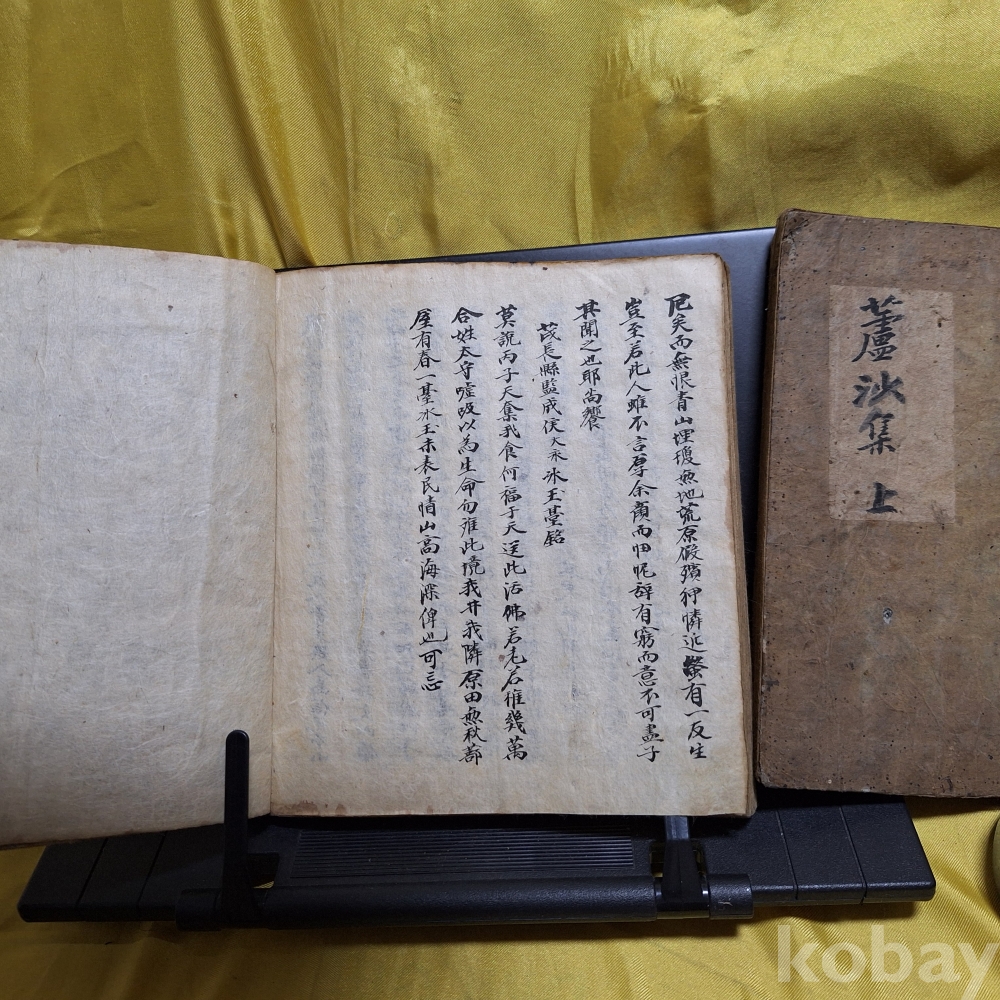 蘆沙集 上
矣而無恨青山埋瓊無地荒原假殯神憐近有一反生
豈至若此人雖不言厚余顔而忸怩辞有窮而意不可盡子
其聞之也耶尚饗
茂長縣監成侯大永冰玉䑓銘
莫說丙子天奪我食何福于天送此活佛若老若稚幾萬
合姓太守噓吸以為生命勿難此境我井我隣原田無秋蔀
屋有春一䑓冰玉未表民情山高海深俾也可忘
kobay